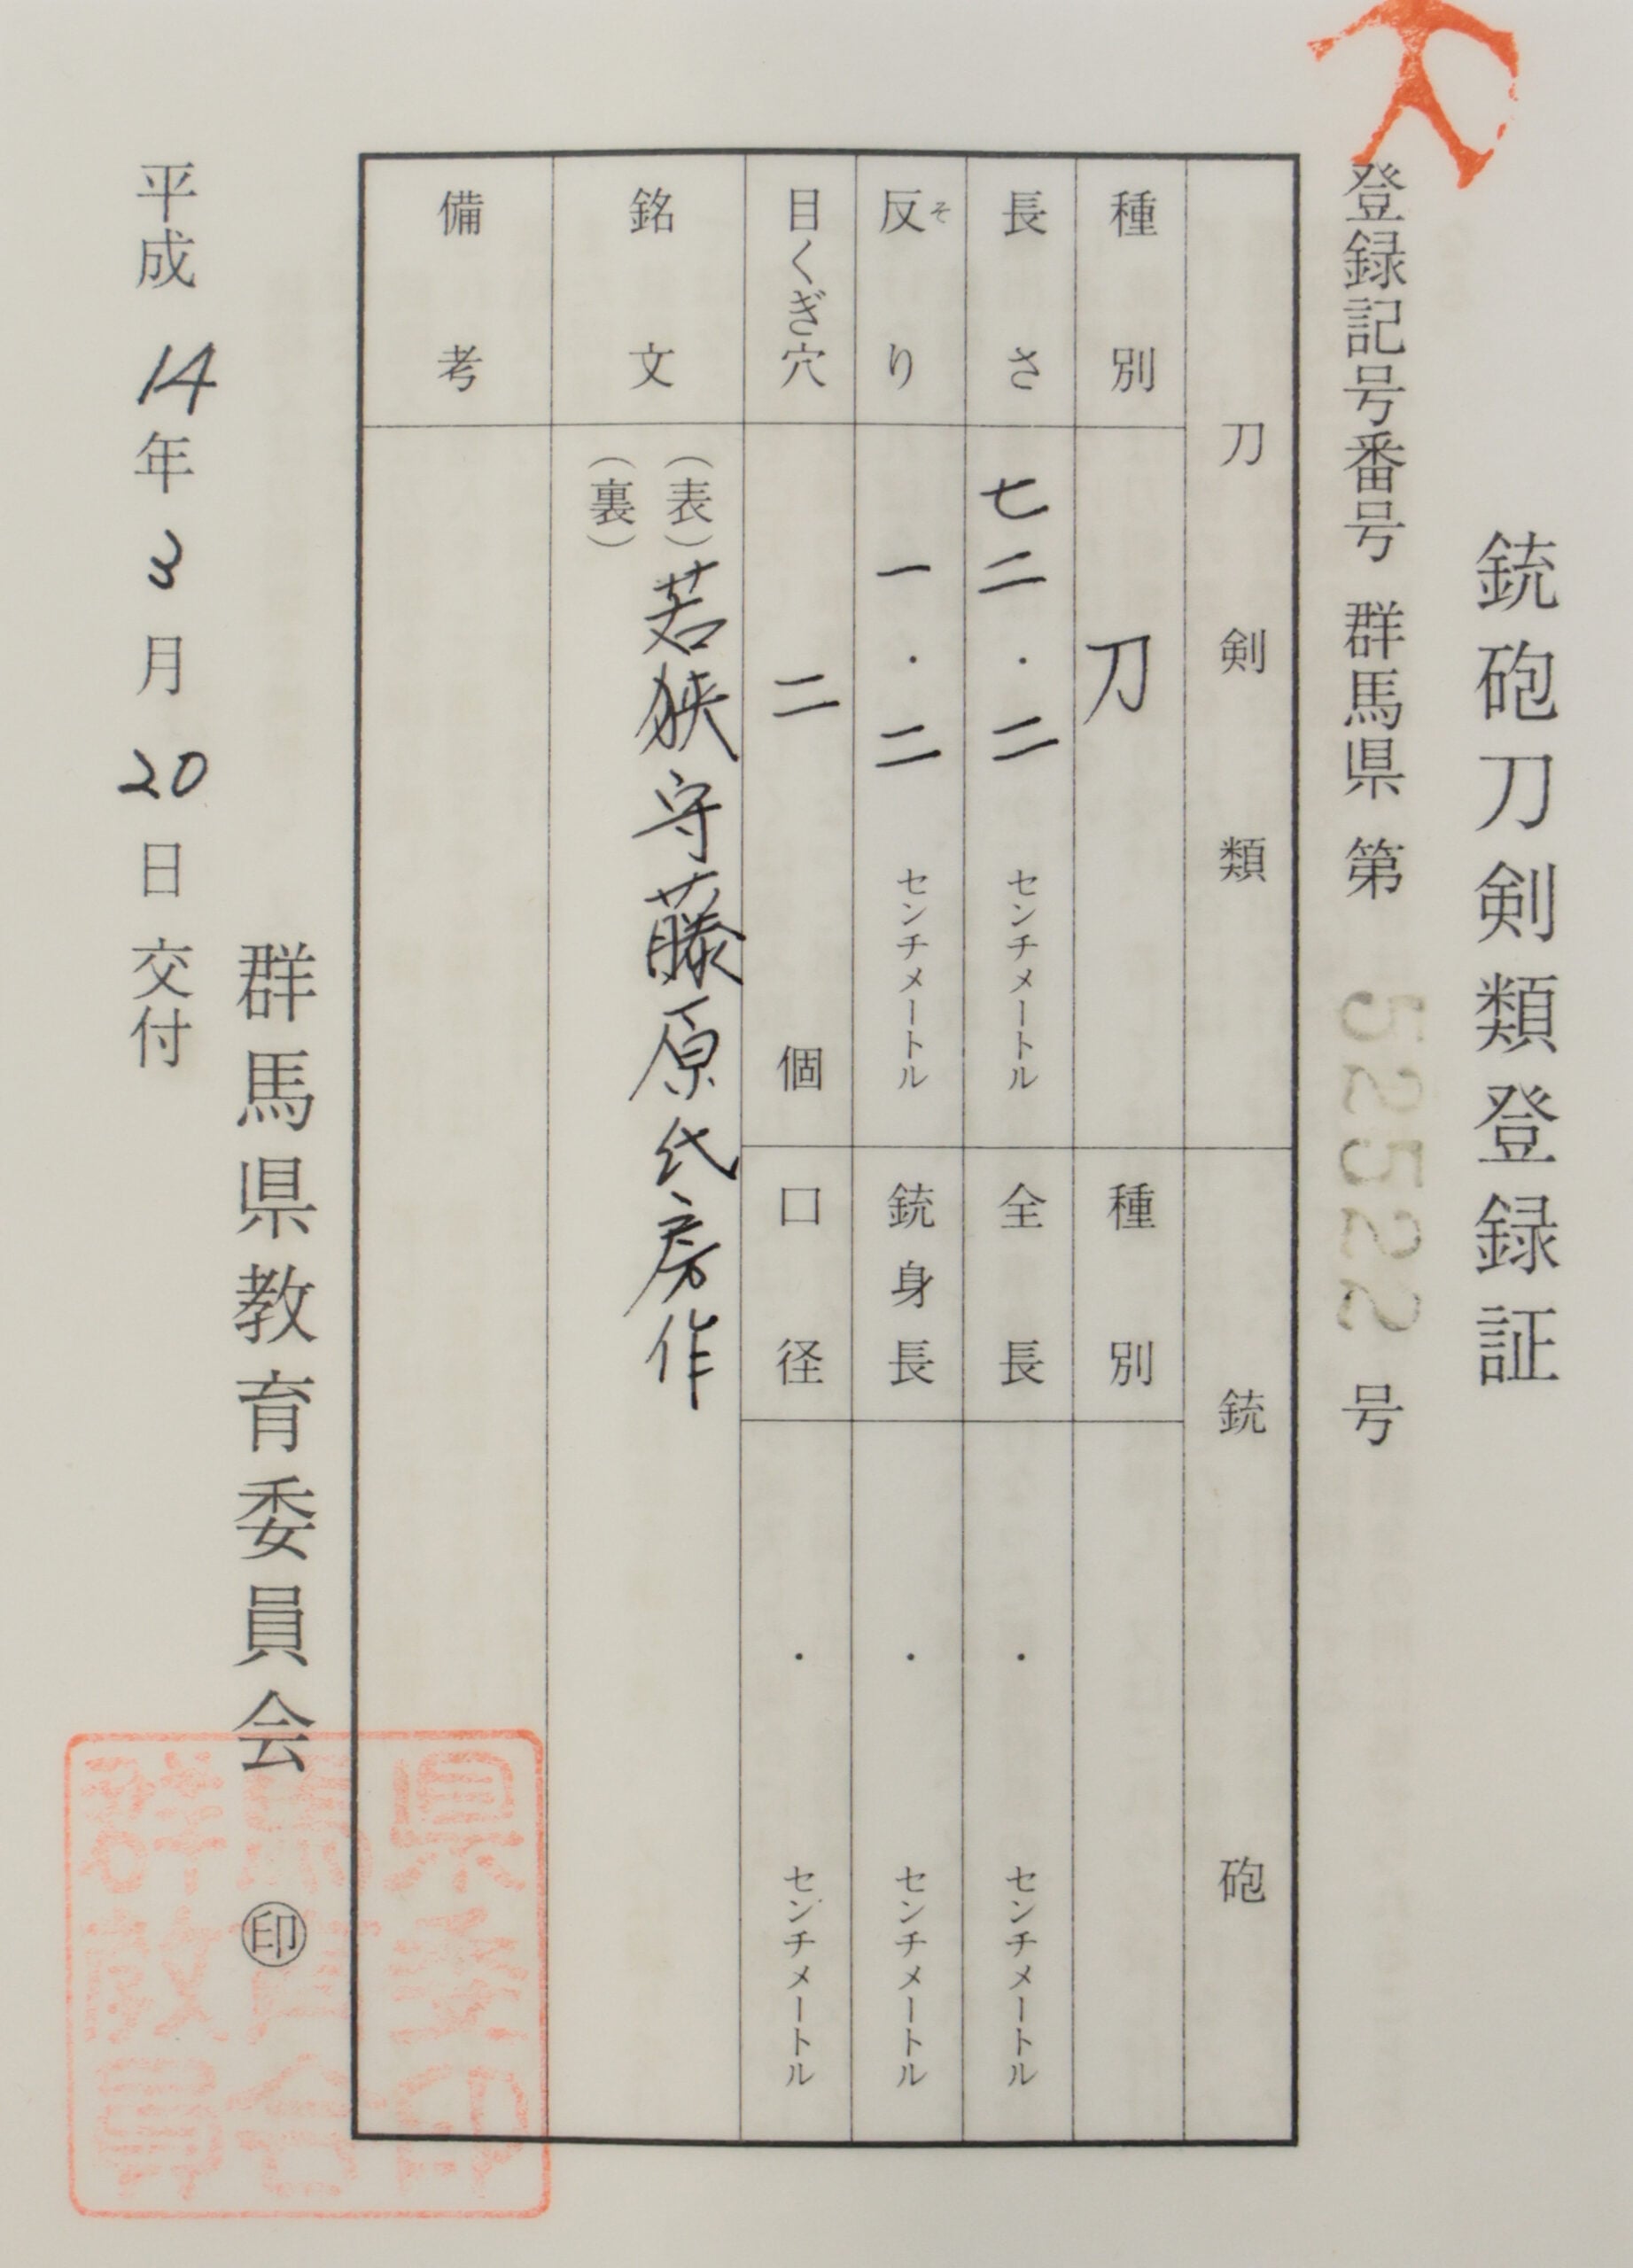 銃砲刀剣類登録証
登録記号番号 群馬県 第 52522 号
刀剣類
銃砲
種別
刀
種別
長さ
七二・二 センチメートル
全長
・ センチメートル
反り
そ
一・二 センチメートル
銃身長
・ センチメートル
目くぎ穴
二 個
口径
・ センチメートル
銘文
(表)若狭守藤原氏房作
(裏)
備考
群馬県教育委員会 ㊞
平成 14 年 3 月 20 日 交付